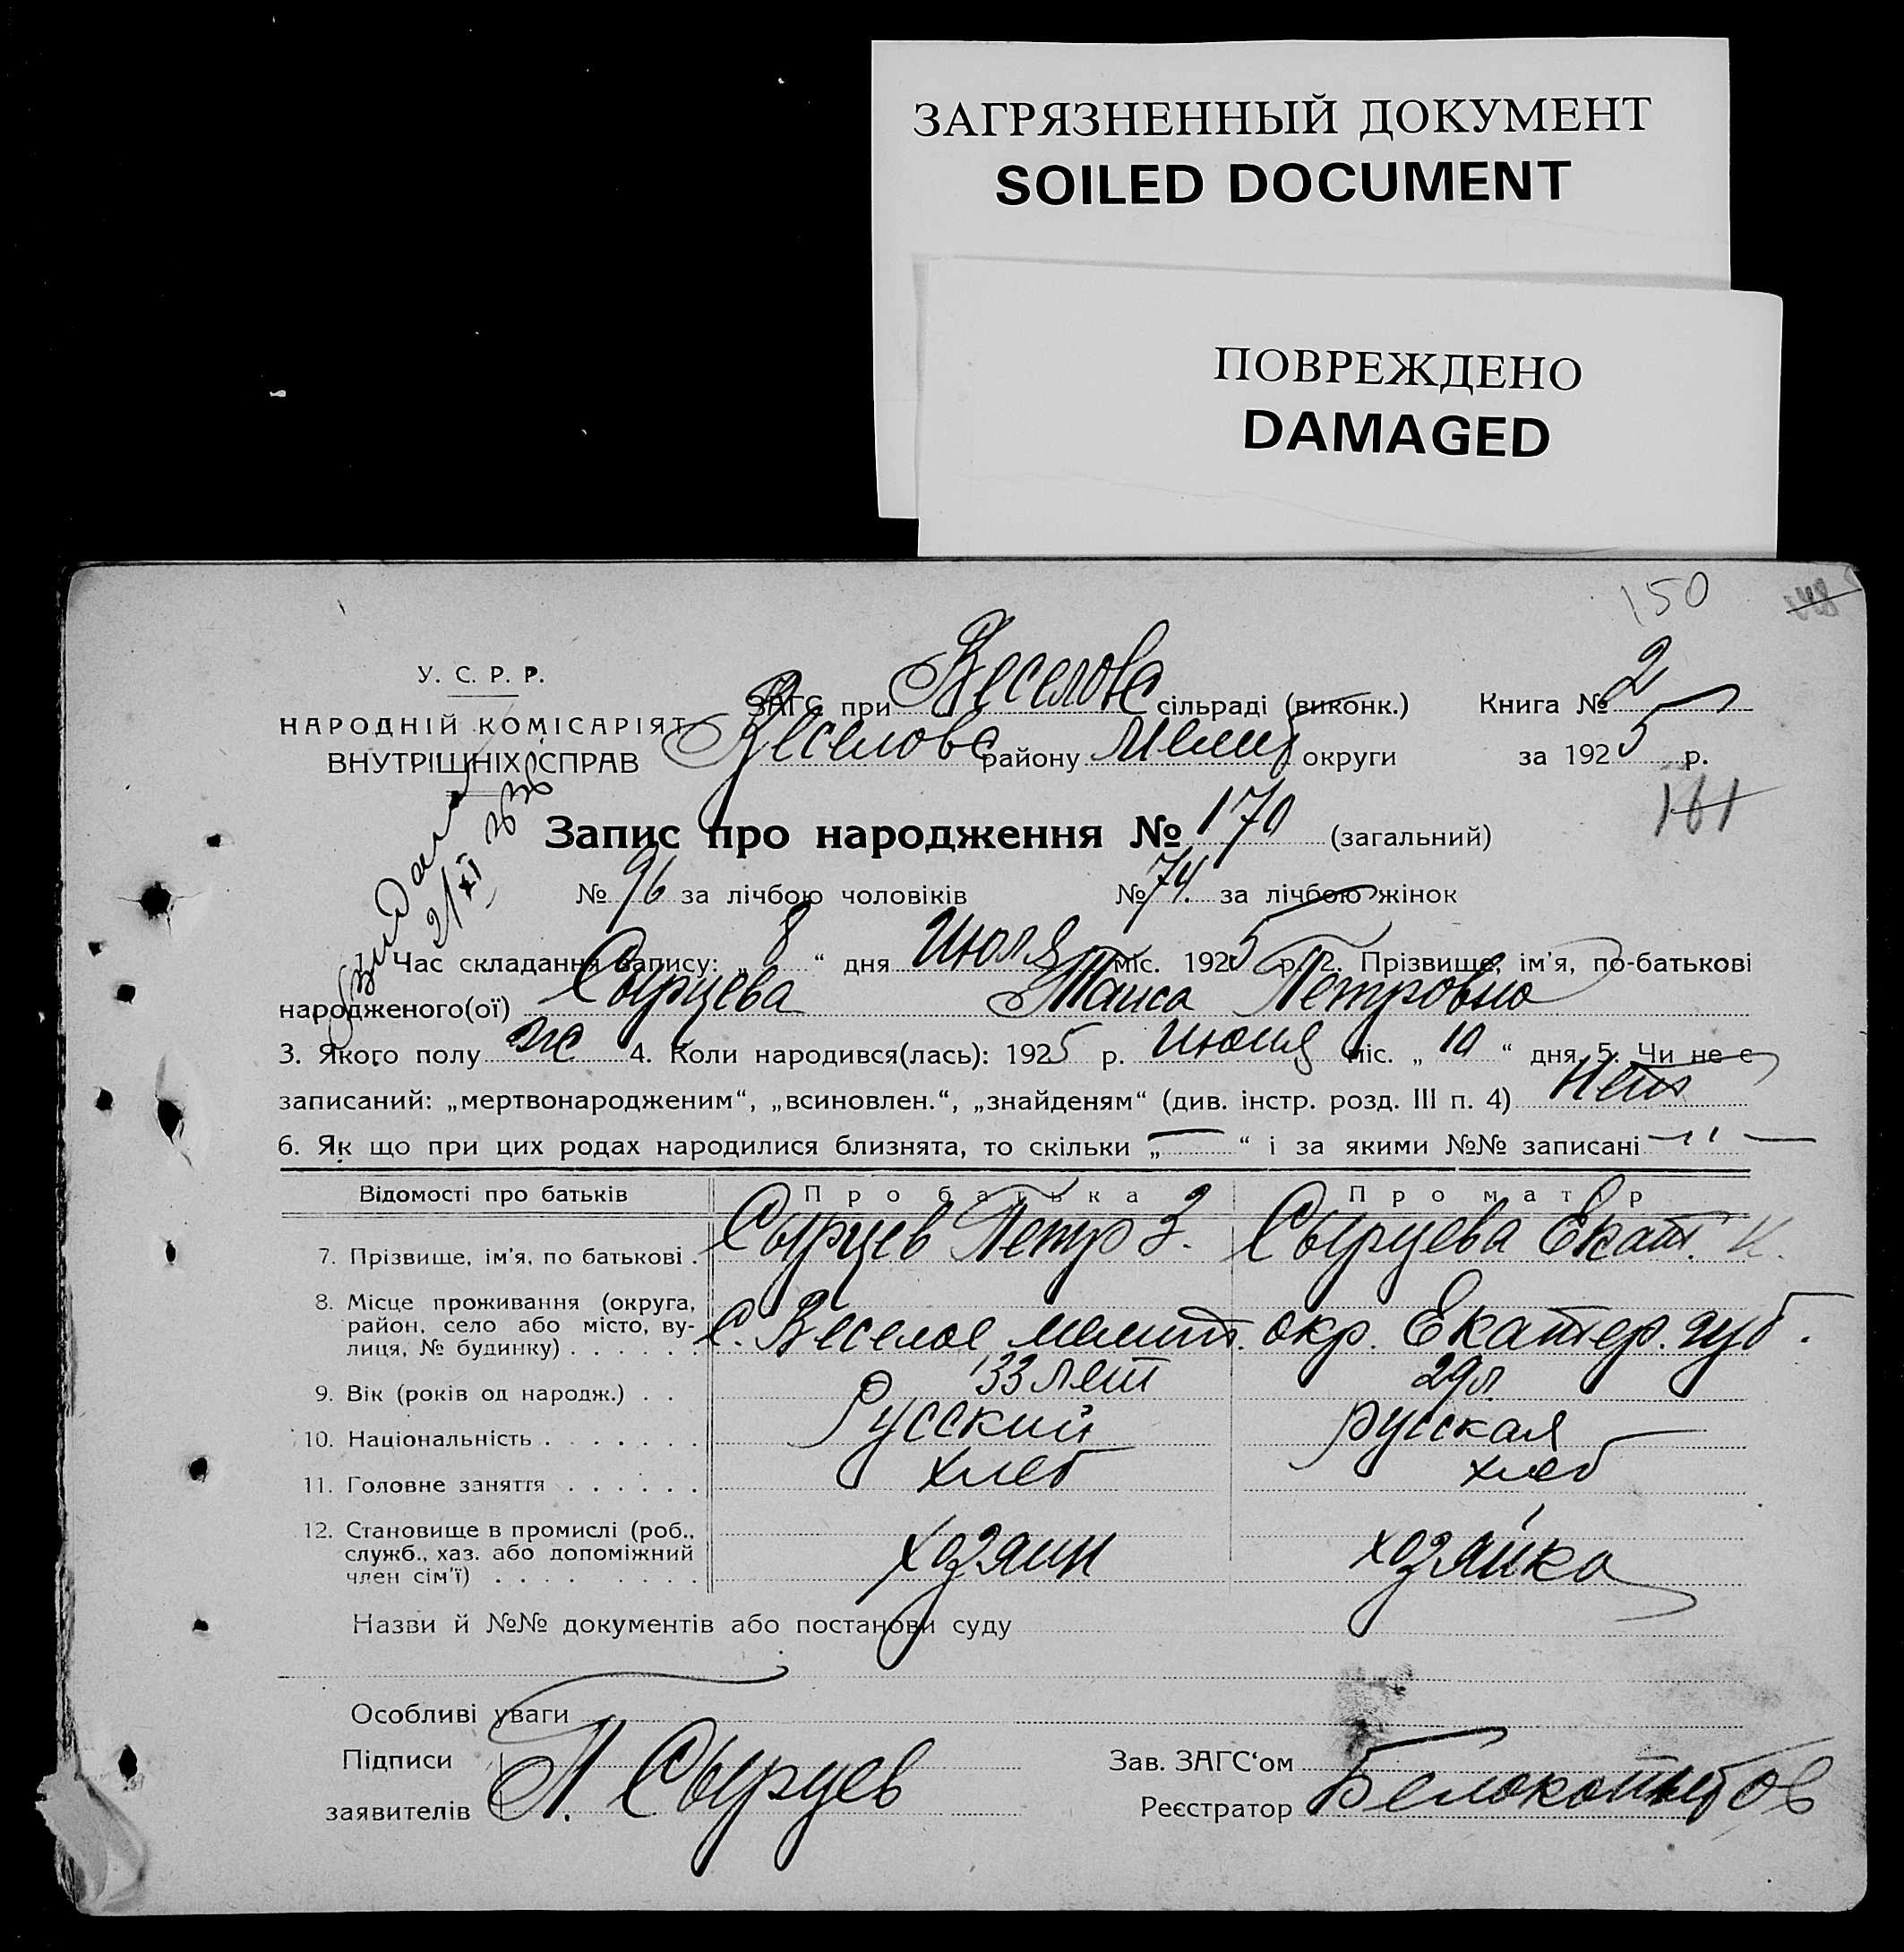 ЗАГРЯЗНЕННЫЙ ДОКУМЕНТ
SOILED DOCUMENT
ПОВРЕЖДЕНО
DAMAGED
150
У. С. Р. Р.
НАРОДНІЙ КОМІСАРІЯТ
ВНУТРІШНІХ СПРАВ
ЗАГС при Веселовс сільраді (виконк.) Книга № 2
Веселовс району Мелит округи за 1925 р.
161
Запис про народження № 170 (загальний)
№ 96 за лічбою чоловіків № 74 за лічбою жінок
1. Час складання запису: „ 8 “ дня Июля міс. 1925 р. 2. Прізвище, ім'я, по-батькові
народженого(ої) Сырцева Таиса Петровна
3. Якого полу ж 4. Коли народився(лась): 1925 р. Июня міс. „ 10 “ дня 5. Чи не є
записаний: „мертвонародженим“, „всиновлен.“, „знайденям“ (див. інстр. розд. III п. 4) Нет
6. Як що при цих родах народилися близнята, то скільки „ — “ і за якими №№ записані — " —
Відомості про батьків Про батька Про матір
7. Прізвище, ім'я, по батькові . Сырцев Петр З. Сырцева Екат. К.
8. Місце проживання (округа,
район, село або місто, ву-
лиця, № будинку) . . . . . . С. Веселое мелит. окр. Екатер. губ.
9. Вік (років од народж.) . . 33 лет 29 л
10. Національність . . . . . . . Русский русская
11. Головне заняття . . . . . . хлеб хлеб
12. Становище в промислі (роб.,
служб., хаз. або допоміжний
член сім'ї) . . . . . . . . . хозяин хозяйка
Назви й №№ документів або постанови суду
Особливі уваги
Підписи
заявителів П. Сырцев
Зав. ЗАГС'ом
Реєстратор Белокопытов